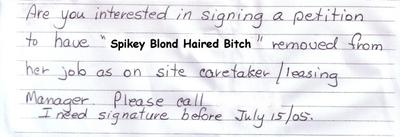 Are you interested in signing a petition
to have "Spikey Blond Haired Bitch" removed from
her job as on site caretaker/leasing
Manager. Please call
I need signature before July 15/05.